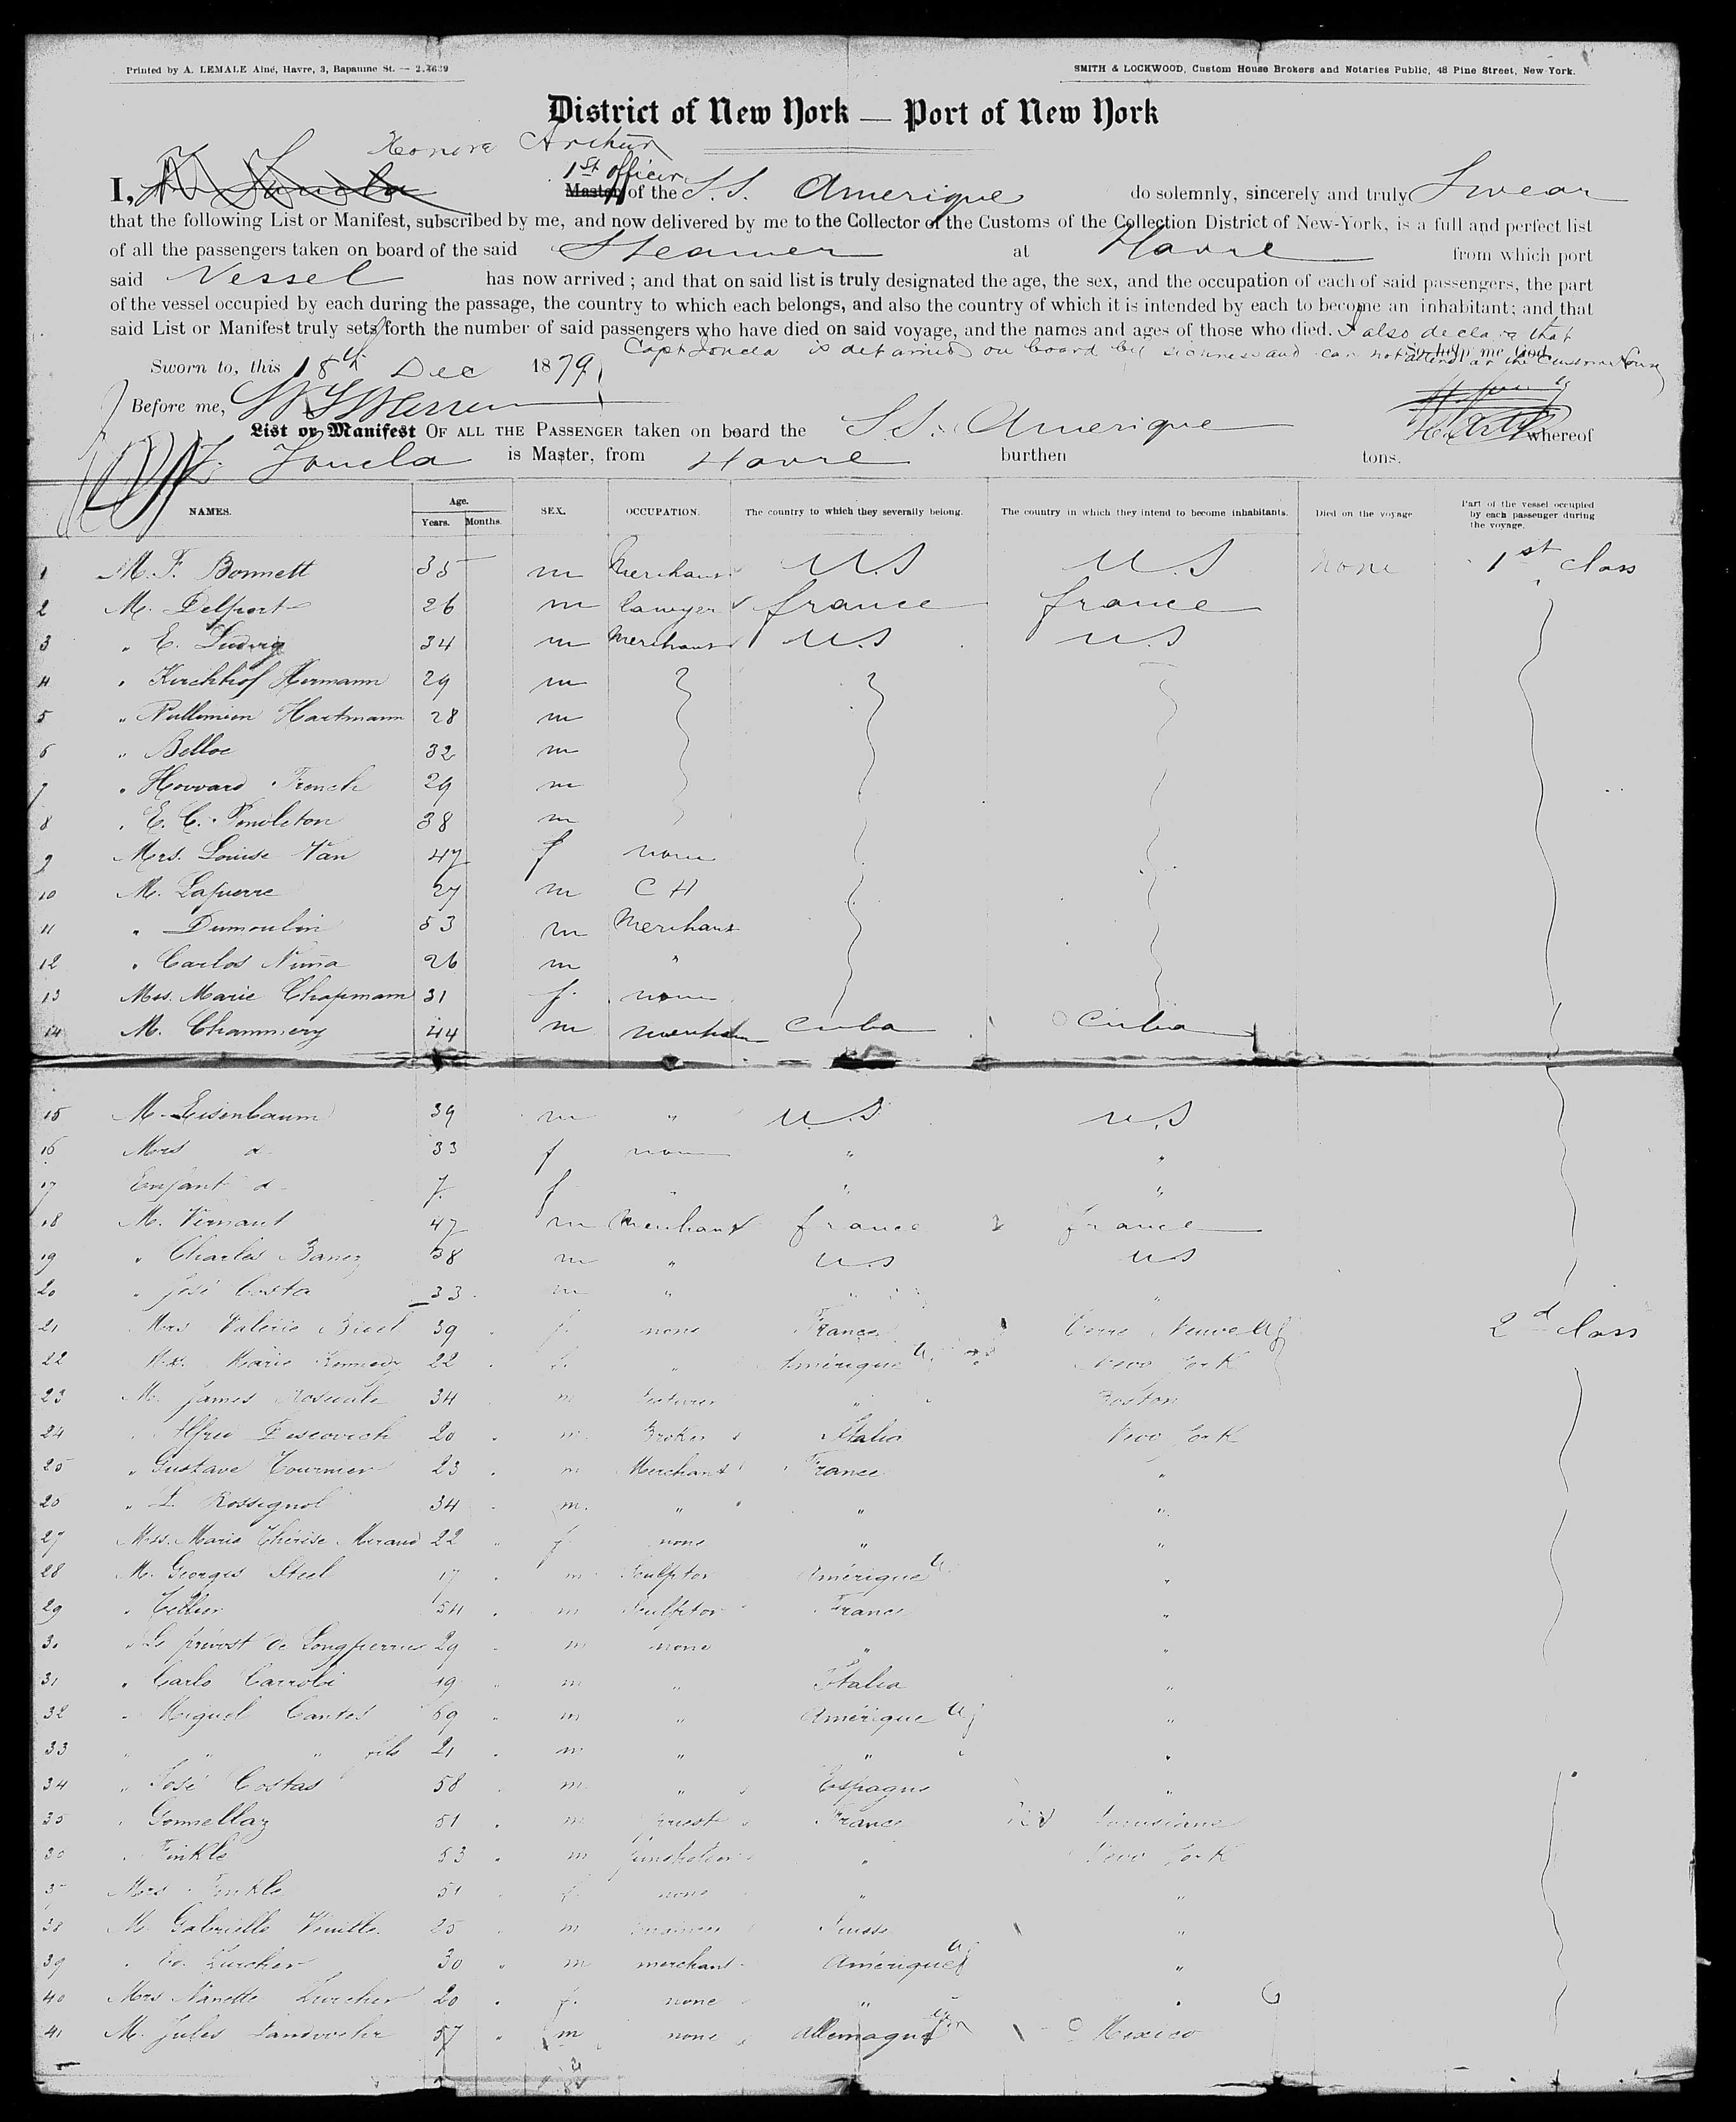 Printed by A. LEMALE Aîné, Havre, 3, Bapaume St. — 2.4639
SMITH & LOCKWOOD, Custom House Brokers and Notaries Public, 48 Pine Street, New York.
District of New York — Port of New York
Arthur
1st officer
I, Master of the S.S. Amerique do solemnly, sincerely and truly Swear
that the following List or Manifest, subscribed by me, and now delivered by me to the Collector of the Customs of the Collection District of New-York, is a full and perfect list
of all the passengers taken on board of the said Steamer at Havre from which port
said Vessel has now arrived; and that on said list is truly designated the age, the sex, and the occupation of each of said passengers, the part
of the vessel occupied by each during the passage, the country to which each belongs, and also the country of which it is intended by each to become an inhabitant; and that
said List or Manifest truly sets forth the number of said passengers who have died on said voyage, and the names and ages of those who died. I also declare that
Capt Jouela is detained on board by sickness and can not attend at the Custom House
So help me God
Sworn to, this 18th Dec 1879
Before me,
List or Manifest OF ALL THE PASSENGER taken on board the S.S. Amerique whereof
Jouela is Master, from Havre burthen tons.
NAMES. Age. Years. Months. SEX. OCCUPATION. The country to which they severally belong. The country in which they intend to become inhabitants. Died on the voyage Part of the vessel occupied by each passenger during the voyage.
1 M. F. Bonnett 35 m Merchant U.S U.S none 1st class
2 M. Delport 26 m Lawyer france france
3 " E. Ludwig 34 m Merchant U.S U.S
4 " Kirchhof Hermann 29 m
5 " Hartmann 28 m
6 " Belloc 32 m
7 " Howard French 29 m
8 " E. C. Pendleton 38 m
9 Mrs. Louise Van 47 f none
10 M. Lapierre 27 m C H
11 " Dumoulin 53 m Merchant
12 " Carlos Niña 26 m "
13 Mrs. Marie Chapmann 31 f. none
14 M. 44 m merchan Cuba Cuba
15 M. Eisenbaum 39 m " U.S U.S
16 Mrs d 33 f none " "
17 Enfant d 7 f " " "
18 M. Vernaut 47 m Merchant france france
19 " Charles 38 m " U.S U.S
20 " José Costa 33 m " " "
21 Mrs Valérie 39 f. none France 2d class
22 Marie 22 f. " Amérique New York
23 M. James 34 m " Boston
24 " Alfred 20 m Broker Italia New York
25 " Gustave Tournier 23 m Merchant France "
26 " L. Rossignol 34 m. " " "
27 Mrs. Marie Thérèse 22 f none " "
28 M. Georges Steel 17 m Sculptor Amérique "
29 " Tellier 54 m Sculptor France "
30 " Le prévost de Longperrier 29 m none " "
31 " Carlo Carrobi 19 m " Italia "
32 " Miguel Cantos 69 m " Amérique "
33 " " " fils 21 m " " "
34 " José Costas 58 m " Espagne "
35 " Gonnellaz 51 m priest France Louisiane
36 " Finkle 53 m " New York
37 Mrs Finkle 51 f. none " "
38 M. Gabrielle 25 m Suisse "
39 " Ed. Zurcher 30 m merchant Amérique "
40 Mrs Nanette Zurcher 20 f. none " "
41 M. Jules 57 m none Allemagne Mexico